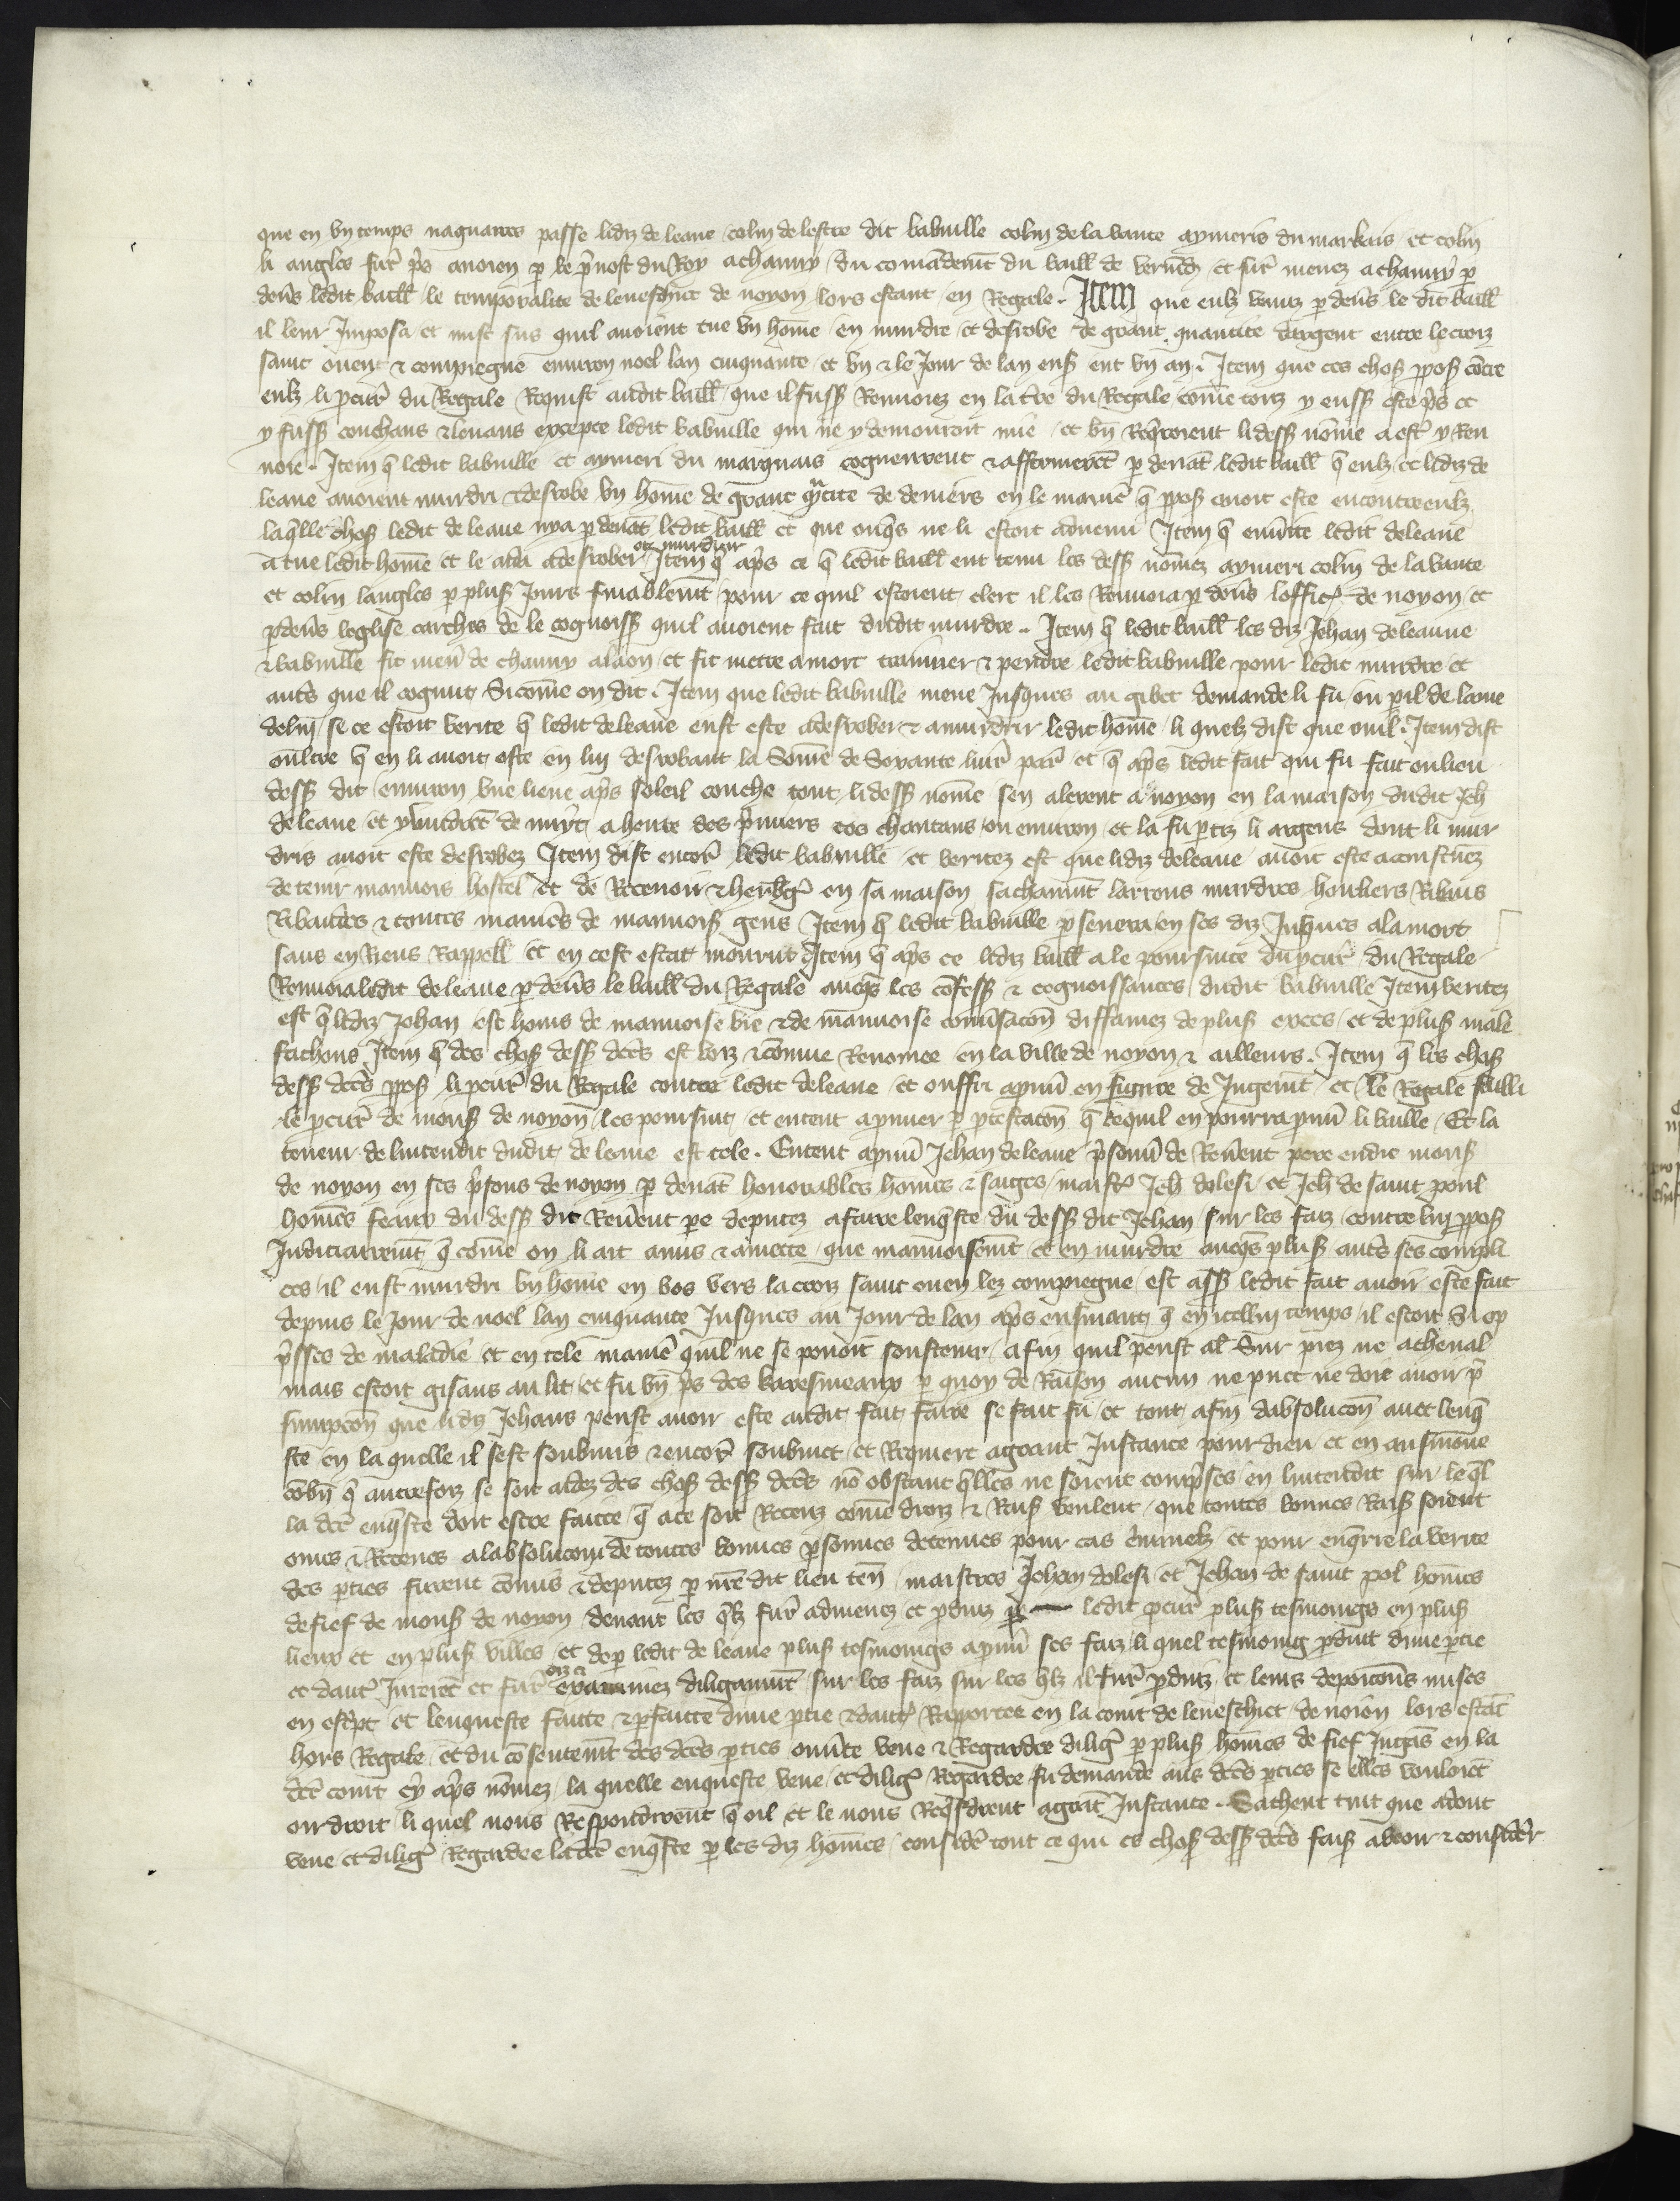 que en un temps naguaires passe lidiz de leaue colin de lestre dit babuille colin de la vante aymeris du markais et colin
li angles furt pris a noion p le pvost du Roy a chauny du comandemt du baill de vermd et furt menez a chauny p
devs ledit baill le temporalite de leveschiet de noyon lors estant en Regale . Item que eulz venuz p devs le dit baill
il leur Imposa et mist sus quil avoient tue un home en murdre et desrobe de grant quantite dargent entre le croiz
saint ouen & compiegne environ noel lan cinquante et un & le Jour de lan ens eut un an . Item que ces choss ppos contre
eulz li pcur du Regale Requist audit baill que il fuss Renvoiez en la tre du Regale come touz y euss este ps et
y fuss couchans & levans excepte ledit babuille qui ne y demouroit mie et bn Reqroient li dess nome a est y Ren
voie . Item q ledit babuille et aymeri du marquais cogneurent & affermeret p devat ledit baill q eulz et lidiz de
leaue avoient murdri & desrobe un home de grant qtite de deniers en le manie q ppos avoit este encontre eulz
laqlle chos ledit de leaue nya p devat ledit baill et que onqs ne li estoit advenu Item q ledit de leaue
a tue ledit home et le aida a desrober et murdrir Item q aps ce q ledit baill eut tenu les dess nomez aymeri colin de la vante
et colin langles p plus Jours pour ce quil estoient clerc il les Renvoia p devs loffic de noyon et
p devs leglise carches de le cognoiss quil avoient fait dudit murdre . Item q ledit baill les diz Jehan de leaue
& babuille fit men de chauny a laon et fit mettre a mort trainner & pendre ledit babuille pour ledit murdre et
auts que il cognut Si come on dit . Item que ledit babuille mene Jusques au gibet demande li fu ou pil de lame
de lui se ce estoit verite q ledit de leaue eust este a desrober & a murdrir ledit home li quelz dist que ouil . Item dist
oultre q en li avoit oste en lui desrobant la Some de Soixante livr par et q aps ledit fait qui fu fait ou lieu
dess dit environ une lieue aps soleil couche tout li dess nome sen alerent a noyon en la maison dudit Jeh
de leaue et y vindret de nuyt a heure des pmiers cos chantans ou environ et la fu ptiz li argens dont li mur
dris avoit este desrobez Item dist encor ledit babuille et veritez est que lidiz de leaue avoit este acoustumez
de tenir mauvois hostel et de Recevoir & herbg en sa maison sachamt larrons murdres houliers Ribaus
Ribaudes & toutes manies de mauvois gens Item q ledit babuille p severa en ses diz Jusques a la mort
sans en Riens Rappell et en cest estat mourut Item q aps ce lidiz baill a le poursuite du pcur du Regale
Renvoia ledit de leaue p devs le baill du Regale avecqs les cofess & cognoissances dudit babuille Item veritez
est q lidiz Johan est homs de mauvoise vie & de mauvoise convsacon diffamez de plus exces et de plus male
fachons Item q des chos dess dtes est voiz & comune Renomee en la ville de noyon & ailleurs . Item q les chos
dess dtes ppos li pcur du Regale contre ledit de leaue et offri a pruv en figure de Jugemt et le Regale failli
le pcur de mons de noyon les poursuit et entent a pruver p ptestacon q ce quil en pourra pruv li vaille . Et la
teneur de lintendit dudit de leaue est tele . Entent a pruv Jehan de leaue psonni de Revent pere en die mons
de noyon en ses psons de noyon p devat honorables homes & saiges maist Jeh dolesi et Jeh de saint poul
homes feaux du dess dit Revent pe deputez a faire lenqste du dess dit Jehan sur les faiz contre lui ppos
Judiciairemt q come on li ait amis & amette que mauvoisemt et en murdre aveqs plus auts ses compli
ces il eust murdri un home en bos vers la croiz saint ouen lez compiegne est ass ledit fait avoir este fait
depuis le Jour de noel lan cinquante Jusques au Jour de lan aps ensuiant q en icellui temps il estoit Si op
psses de maladie et en tele manie quil ne se povoit soustenir afin quil peust al Sur piez ne a cheval
mais estoit gisans au lit et fu vn ps des karesmeaux p quoy de Raison aucun ne puet ne doit avoir p
sumpcon que lidiz Jehans peust avoir este audit fait faire se fait fu et tout afin dabsolucon avec lenq
ste en la quelle il sest soubmis & encor soubmet et Requiert a grant Instance pour dieu et en aumosne
cobn q autrefoiz se soit aidez des chos dess dtes no obstant qlles ne soient comprises en lintendit sur leql
la dte enqste doit estre faitte q a ce soit Receuz come droiz & Rais veulent que toutes bonnes Rais soient
oiies & Receues a labsolucion de toutes bonnes psonnes detenues pour cas criminelz et pour enqrre la verite
des pties furent comis & deputez p nre dit lieu ten maistres Jehan dolesi et Jehan de saint pol homes
de fief de mons de noyon devant les qlz furt admenez et pduiz p ledit pcur plus tesmoings en plus
lieux et en plus villes et de p ledit de leaue plus tesmoings a pruv ses faiz li quel tesmoing pduit dune ptie
et daut Jureret et furt oiz & examinez diligamt sur les faiz sur les qlz il furt pduiz et leurs deposicons mises
en escpt et lenqueste faitte & pfaitte dune ptie & daut Raportee en la court de leveschiet de noion lors estat
hors Regale et du cosentemt des dtes pties ouvte veue & Regardee dilig p plus homes de fief Jugas en la
dte court cy aps nomez la quelle enqueste veue et dilig Regardee fu demande aus dtes pties se elles vouloiet
oir droit li quel nous Respondirent q oil et le nous Reqsdrent a grat Instance . Sachent tuit que adont
veue et dilig Regardee la dte enqste p les diz homes considr tout ce qui es chos dess dtes fais a veoir & considr